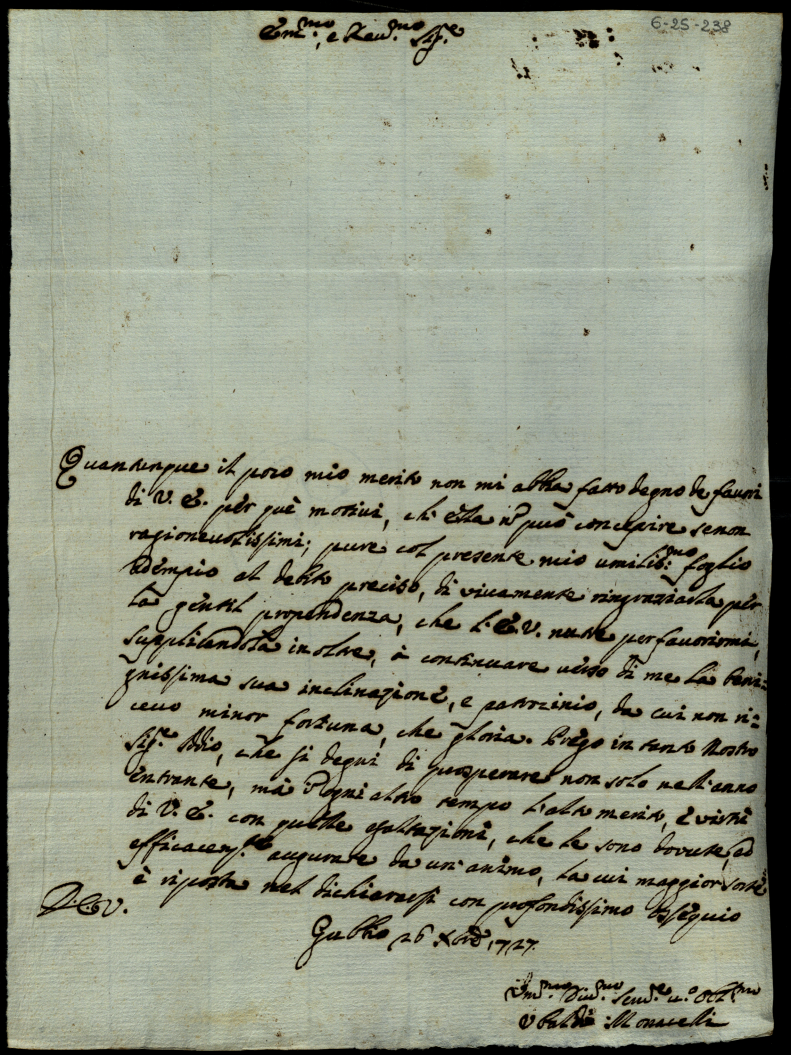 6-25-238
Em.mo, e Reu.mo Sig.e
Quantunque il poco mio merito non mi abbia fatto degno de fauori
di V. E. per què motiui, ch'ella nō può concepire senon
ragioneuolissimi; pure col presente mio umiliss:mo foglio
adempio al debito preciso, di viuamente ringraziarla per
la gentil propendenza, che l'E.V. nutre per fauorirmi,
supplicandola inoltre, à continuare verso di me la beni=
gnissima sua inclinazione, e patrozinio, da cui non ri=
ceuo minor fortuna, che gloria. Prego intanto Nostro
Sig.e Iddio, che si degni di prosperare non solo nell'anno
entrante, mà ogni altro tempo l'alto merito, e virtù
di V. E. con quelle esaltazioni, che le sono dovute, ed
efficacem.te augurate da un'animo, la cui maggior sorte
è riposta nel dichiararsi con profondissimo ossequio
D. E. V.
Gubbio 26 Xbre 1727.
Um.mo Diu.mo Seru.e u.o Obl.mo
Vbaldo Monacelli